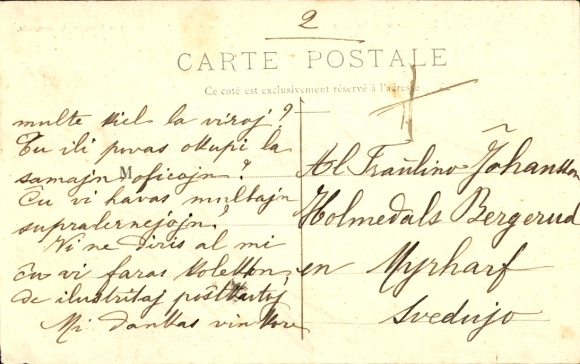 2
CARTE POSTALE
Ce coté est exclusivement réservé à l'adresse
multe kiel la viroj?
Ĉu ili povas okupi la
samajn oficojn?
M
Ĉu vi havas multajn
superlernejojn?
Vi ne diris al mi
ĉu vi faras kolekton
de ilustritaj poŝtkartoj
Mi dankas vin kore
Al Fraŭlino Johansson
Holmedals Bergerud
en
Svedujo